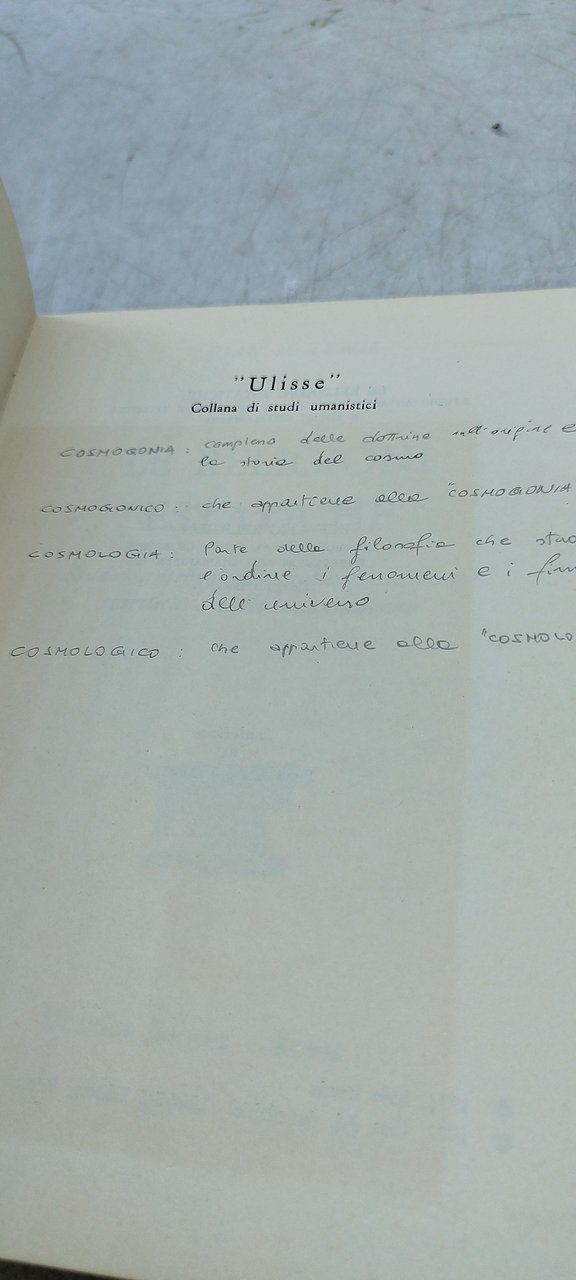 "Ulisse"
Collana di studi umanistici
COSMOGONIA : complesso delle dottrine sull'origine e
la storia del cosmo
COSMOGONICO : che appartiene alla "COSMOGONIA
COSMOLOGIA : Parte della filosofia che stud
l'ordine i fenomeni e i fini
dell'universo
COSMOLOGICO : che appartiene alla "COSMOLO